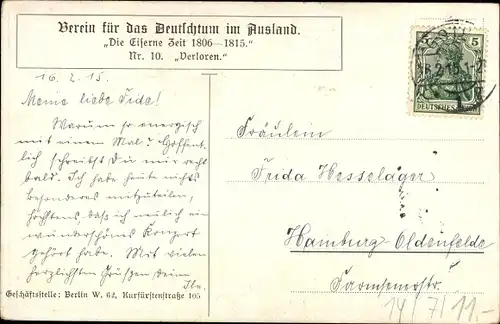 Verein für das Deutschtum im Ausland.
„Die Eiserne Zeit 1806—1815."
Nr. 10. „Verloren."
16. 2. 15.
Meine liebe Frida!
Warum so energisch
mit einem Mal? Hoffent-
lich schreibst Du mir recht
bald. Ich habe heute nichts
besonderes mitzuteilen,
höchstens, daß ich neulich ein
wunderschönes Konzert
gehört habe. Mit vielen
herzlichsten Grüßen Deine
Ilse.
Geschäftsstelle: Berlin W. 62, Kurfürstenstraße 105
5
DEUTSCHES
Fräulein
Frida Hesseläger
Hamburg-Oldenfelde
Farmsenerstr.
14/7/11.-